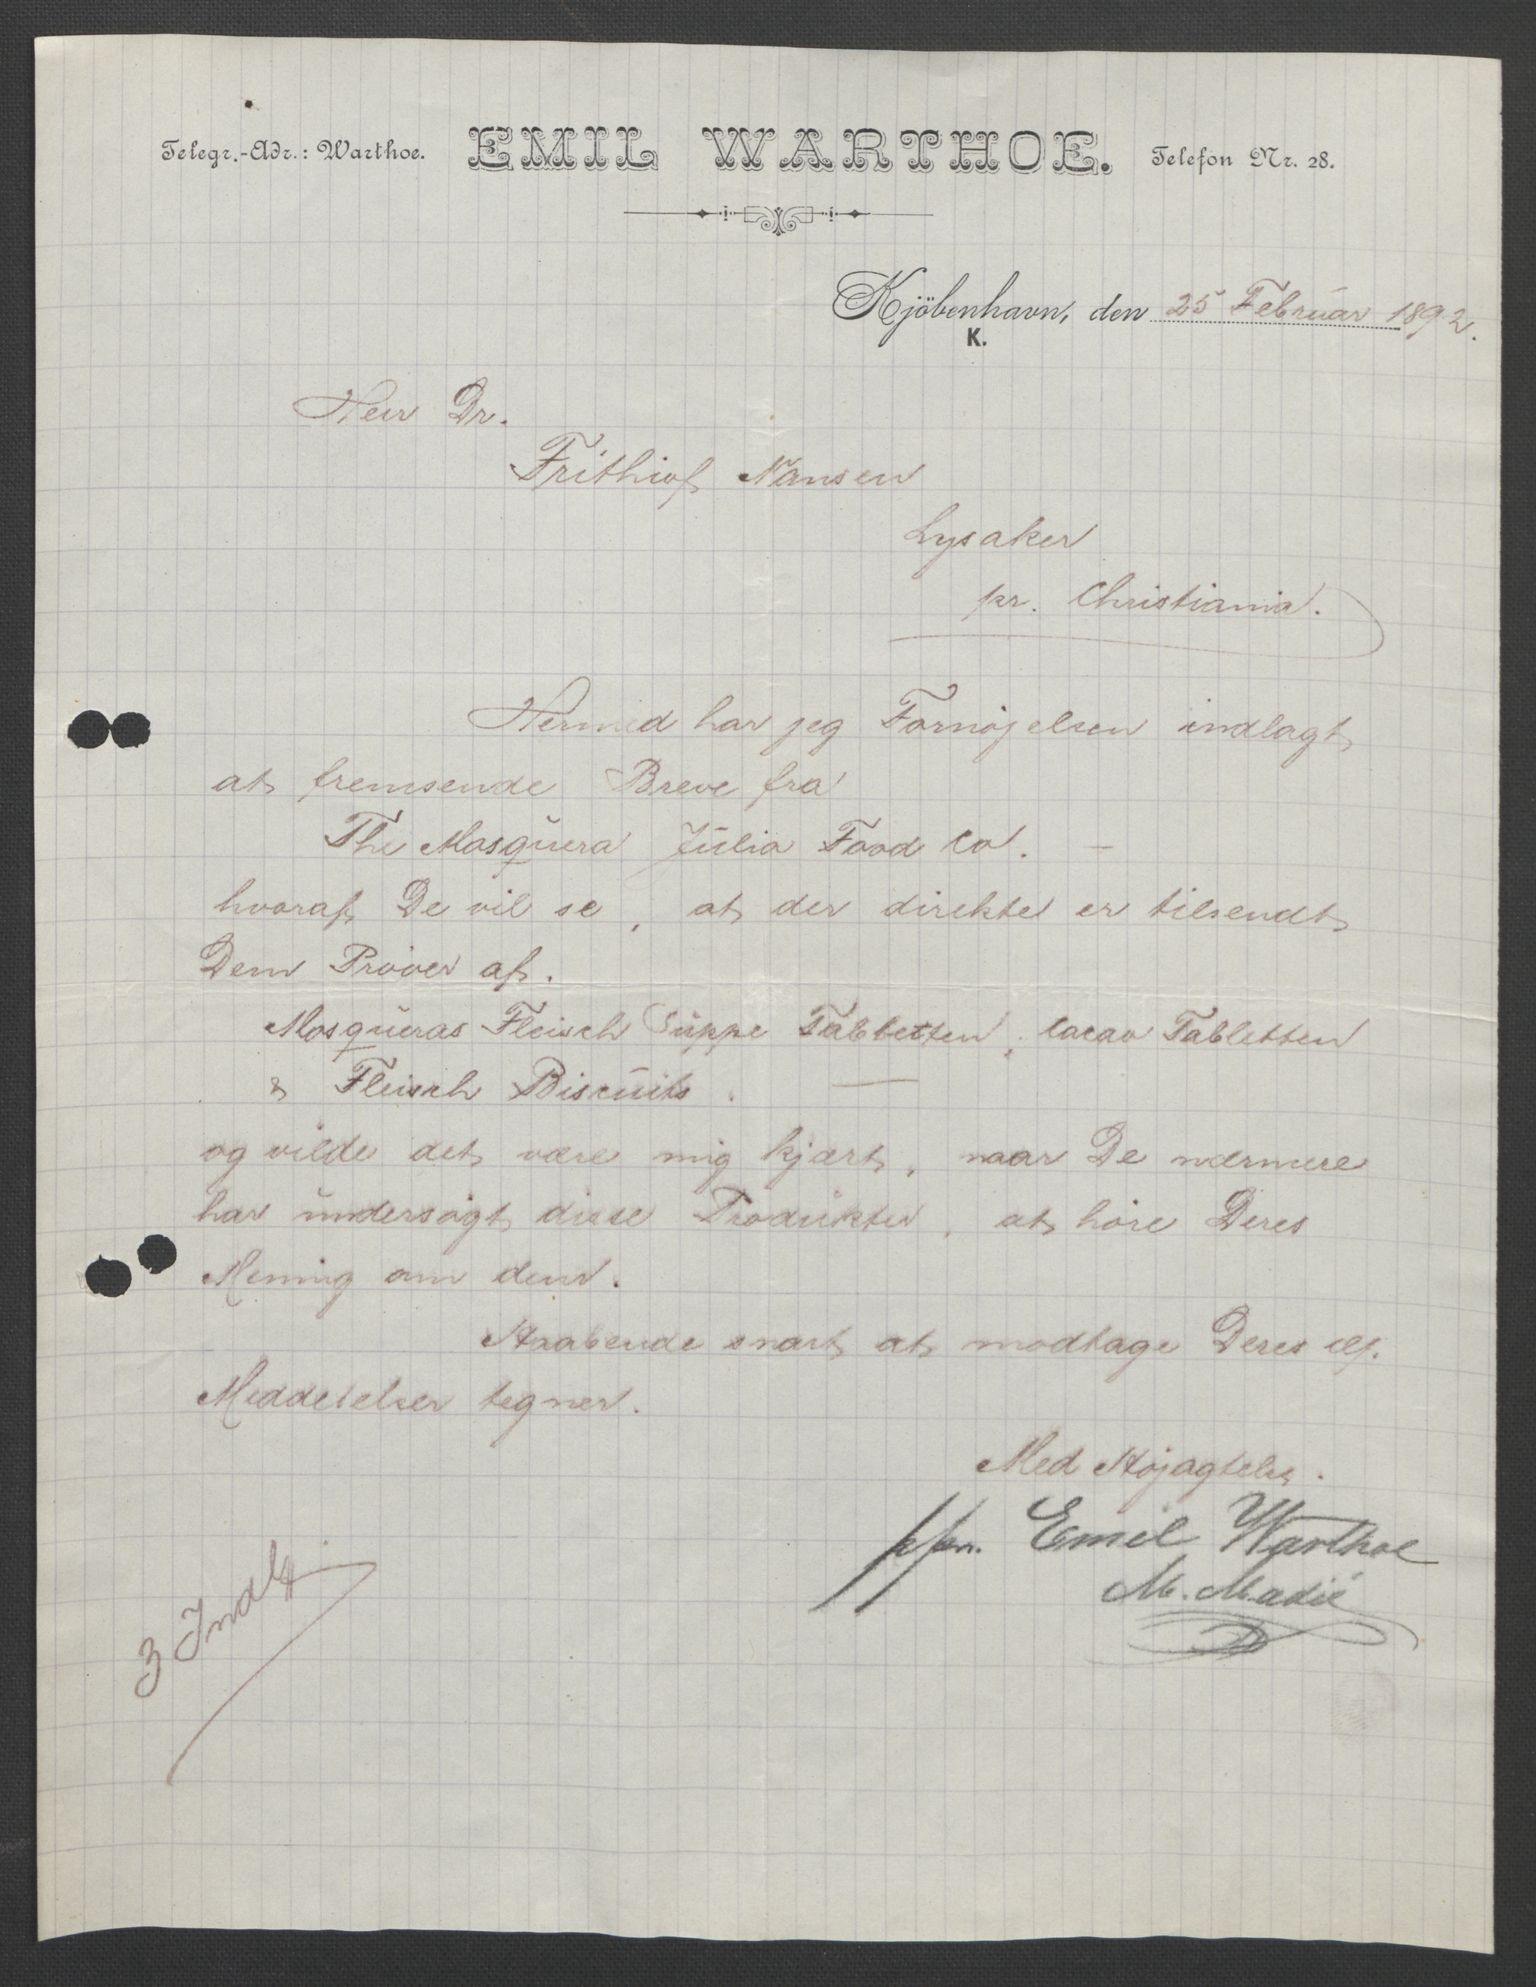 Telegr.-Adr.: Warthoe. EMIL WARTHOE. Telefon Nr. 28.
Kjöbenhavn, den 25 Februar 1892.
K.
Herr Dr.
Frithiof Nansen
Lysaker
pr. Christiania.
Hermed har jeg Fornøjelsen indlagt
at fremsende Breve fra
The Mosquera Julia Food Co. —
hvoraf De vil se, at der direkte er tilsendt
Dem Prøver af.
Mosqueras Fleisch Suppe Tabletten, Cacao Tabletten
& Fleisch Biscuits. —
og vilde det være mig kjært, naar De nærmere
har undersøgt disse Produkter, at høre Deres
Mening om dem.
Haabende snart at modtage Deres
Meddelelser tegner.
Med Højagtelse.
ppn. Emil Warthoe
3 Indlg